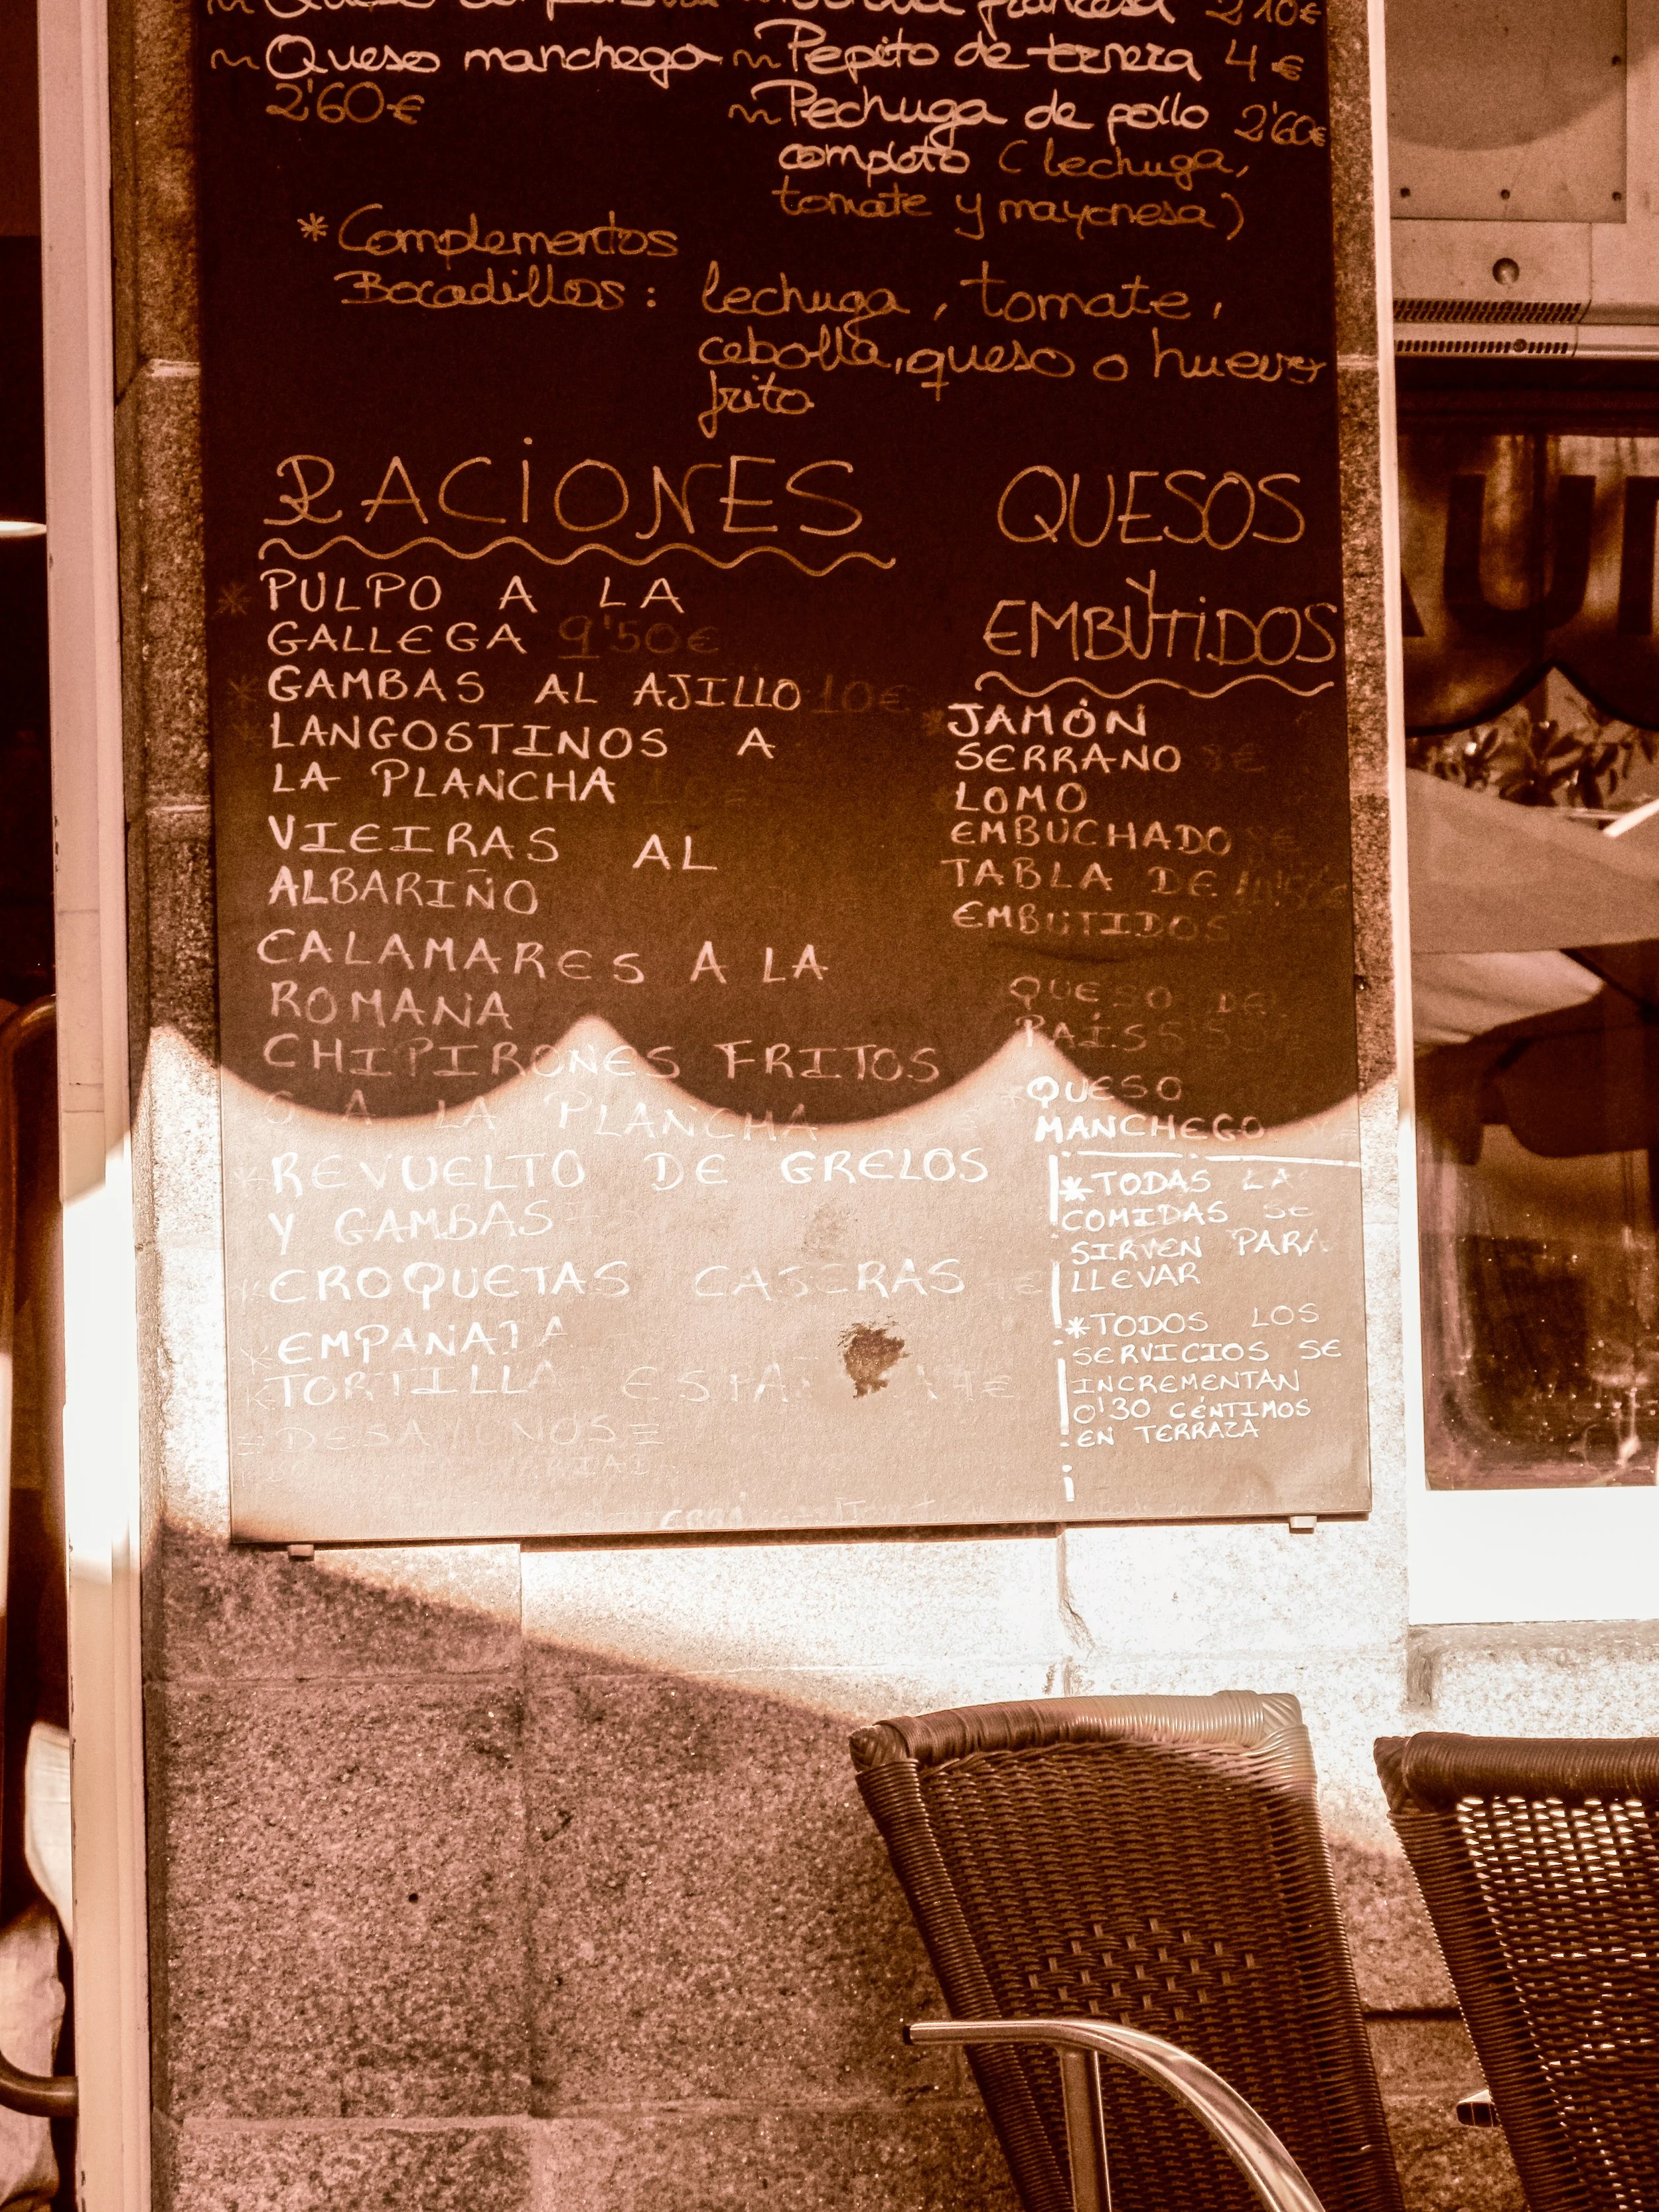 francesa 2'10€
~Queso manchego
2'60€
~Pepito de ternera 4€
~Pechuga de pollo 2'60€
completo (lechuga,
tomate y mayonesa)
*Complementos
Bocadillos: lechuga, tomate,
cebolla, queso o huevo
frito
RACIONES
*PULPO A LA
GALLEGA 9'50€
*GAMBAS AL AJILLO 10€
*LANGOSTINOS A
LA PLANCHA
VIEIRAS AL
ALBARIÑO
CALAMARES A LA
ROMANA
CHIPIRONES FRITOS
A LA PLANCHA
*REVUELTO DE GRELOS
Y GAMBAS
*CROQUETAS CASERAS
*EMPANADA
*TORTILLA
QUESOS
Y
EMBUTIDOS
*JAMÓN
SERRANO
LOMO
EMBUCHADO
TABLA DE
EMBUTIDOS
QUESO DEL
PAÍS
*QUESO
MANCHEGO
*TODAS LA
COMIDAS SE
SIRVEN PARA
LLEVAR
*TODOS LOS
SERVICIOS SE
INCREMENTAN
0'30 CÉNTIMOS
EN TERRAZA